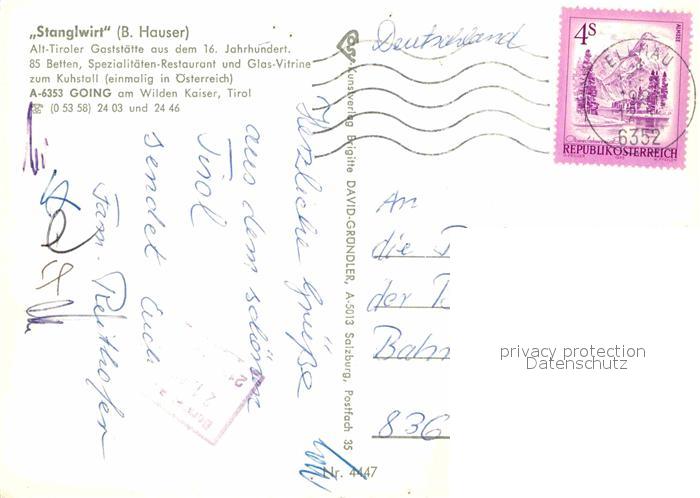 „Stanglwirt“ (B. Hauser)
Alt-Tiroler Gaststätte aus dem 16. Jahrhundert.
85 Betten, Spezialitäten-Restaurant und Glas-Vitrine
zum Kuhstall (einmalig in Österreich)
A-6353 GOING am Wilden Kaiser, Tirol
☎ (0 53 58) 24 03 und 24 46
Herzliche Grüße
aus dem schönen
Tirol
sendet Euch
Fam. Reithofer
Kunstverlag Brigitte DAVID-GRÜNDLER, A-5013 Salzburg, Postfach 35
Nr. 4447
Deutschland
4S
ALMSEE
REPUBLIK ÖSTERREICH
ELLMAU
6352
An
die
der
Bahn
836
privacy protection
Datenschutz